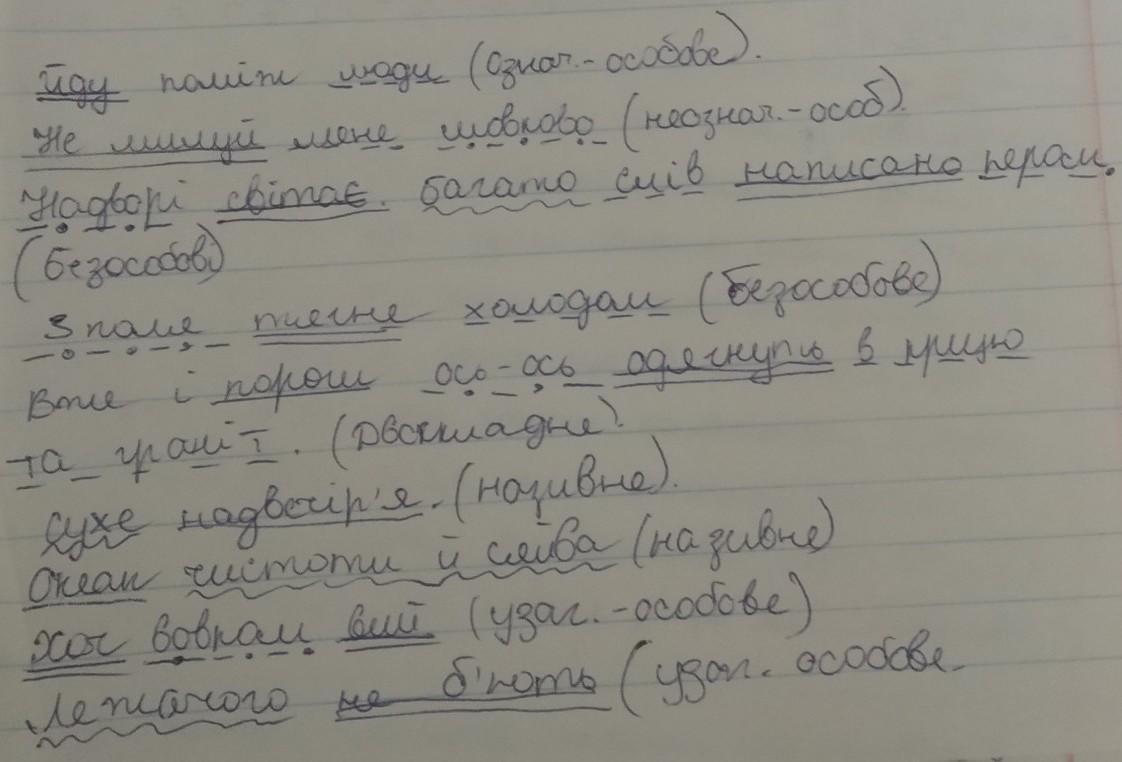 йду поміж люди (Означ.-особове).
Не милуй мене шовково (неознач.-особ).
Надворі світає. багато слів написано пером.
(безособові)
З поля тягне холодом (безособове)
Вже і порош ось-ось одягнуть в крицю
та граніт. (Двоскладне)
Сухе надвечір'я. (називне).
Океан чистоти й сяйва (називне)
Хоч вовком вий (узаг.-особове)
Лежачого не б'ють (узаг. особове